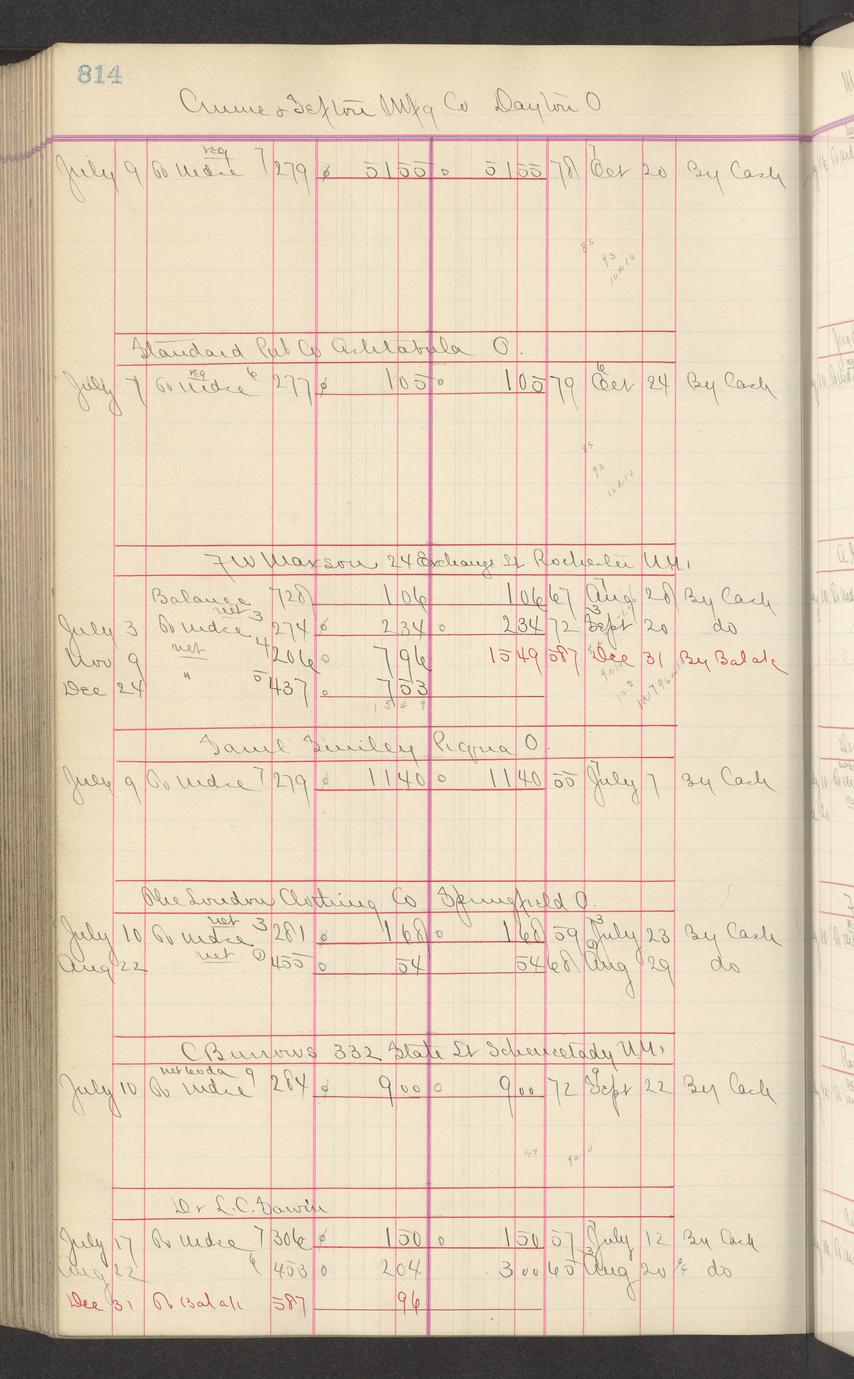 814
Mfg Co Dayton O
reg
July 9 To Mdse 7 279 51 55 51 55 78 Oct 20 By Cash
Standard Pub Co Ashtabula O.
reg
July 7 To Mdse 6 277 1 05 1 05 79 Oct 24 By Cash
F W Maxson 24 Exchange St Rochester N.Y.
Balance 728 1 06 1 06 67 Aug 28 By Cash
net
July 3 To Mdse 3 274 2 34 2 34 72 Sept 20 do
net
Nov 9 4 206 7 96 15 49 587 Dec 31 By Balak
Dec 24 " 5 437 7 53
15 49
Saml Smiley Piqua O.
July 9 To Mdse 7 279 11 40 11 40 55 July 7 By Cash
The London Clothing Co Springfield O.
net
July 10 To Mdse 3 281 1 68 1 68 59 July 23 By Cash
Aug 22 net 455 54 54 68 Aug 29 do
C Burrows 332 State St Schenectady N.Y.
July 10 To Mdse 9 284 9 00 9 00 72 Sept 22 By Cash
Dr L.C.
July 17 To Mdse 7 306 1 50 1 50 57 July 12 By Cash
Aug 22 6 453 2 04 3 00 65 Aug 20 do
Dec 31 To Balak 587 96